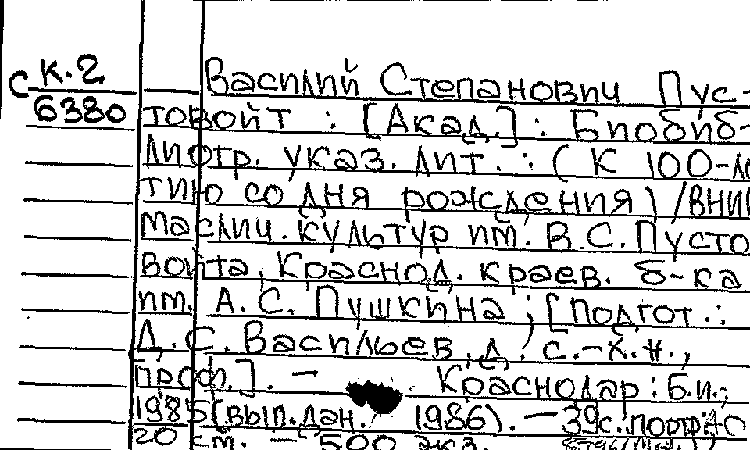 С К.2
6380
Василий Степанович Пус-
товойт : [Акад.] : Биобиб-
лиогр. указ. лит. : (К 100-ле
тию со дня рождения) /ВНИИ
маслич. культур им. В.С.Пусто
войта, Краснод. краев. б-ка
им. А.С. Пушкина ; [Подгот.:
Д.С. Васильев, д. с.-х.н.,
проф.]. — Краснодар : Б.и.,
1985 (вып.дан. 1986). — 39с.
20 см. — 500 экз.